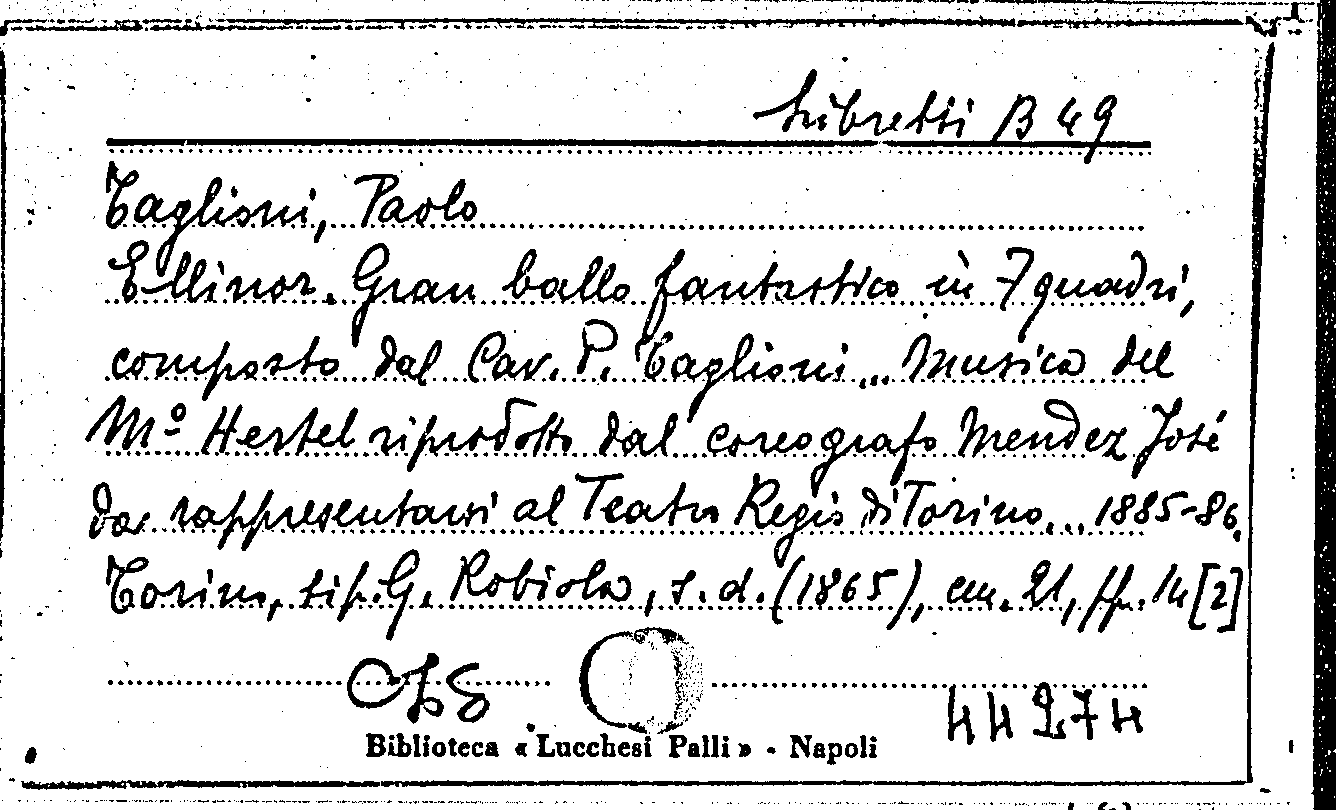 Libretti B 49
Taglioni, Paolo
Ellinor. Gran ballo fantastico in 7 quadri,
composto dal Cav. P. Taglioni... Musica del
Mº Hertel riprodotto dal coreografo Mendez José
da rappresentarsi al Teatro Regio di Torino... 1885-86.
Torino, tip. G. Robiola, s.d. (1865), cm. 21, pp. 14 [2]
44274
Biblioteca « Lucchesi Palli » - Napoli